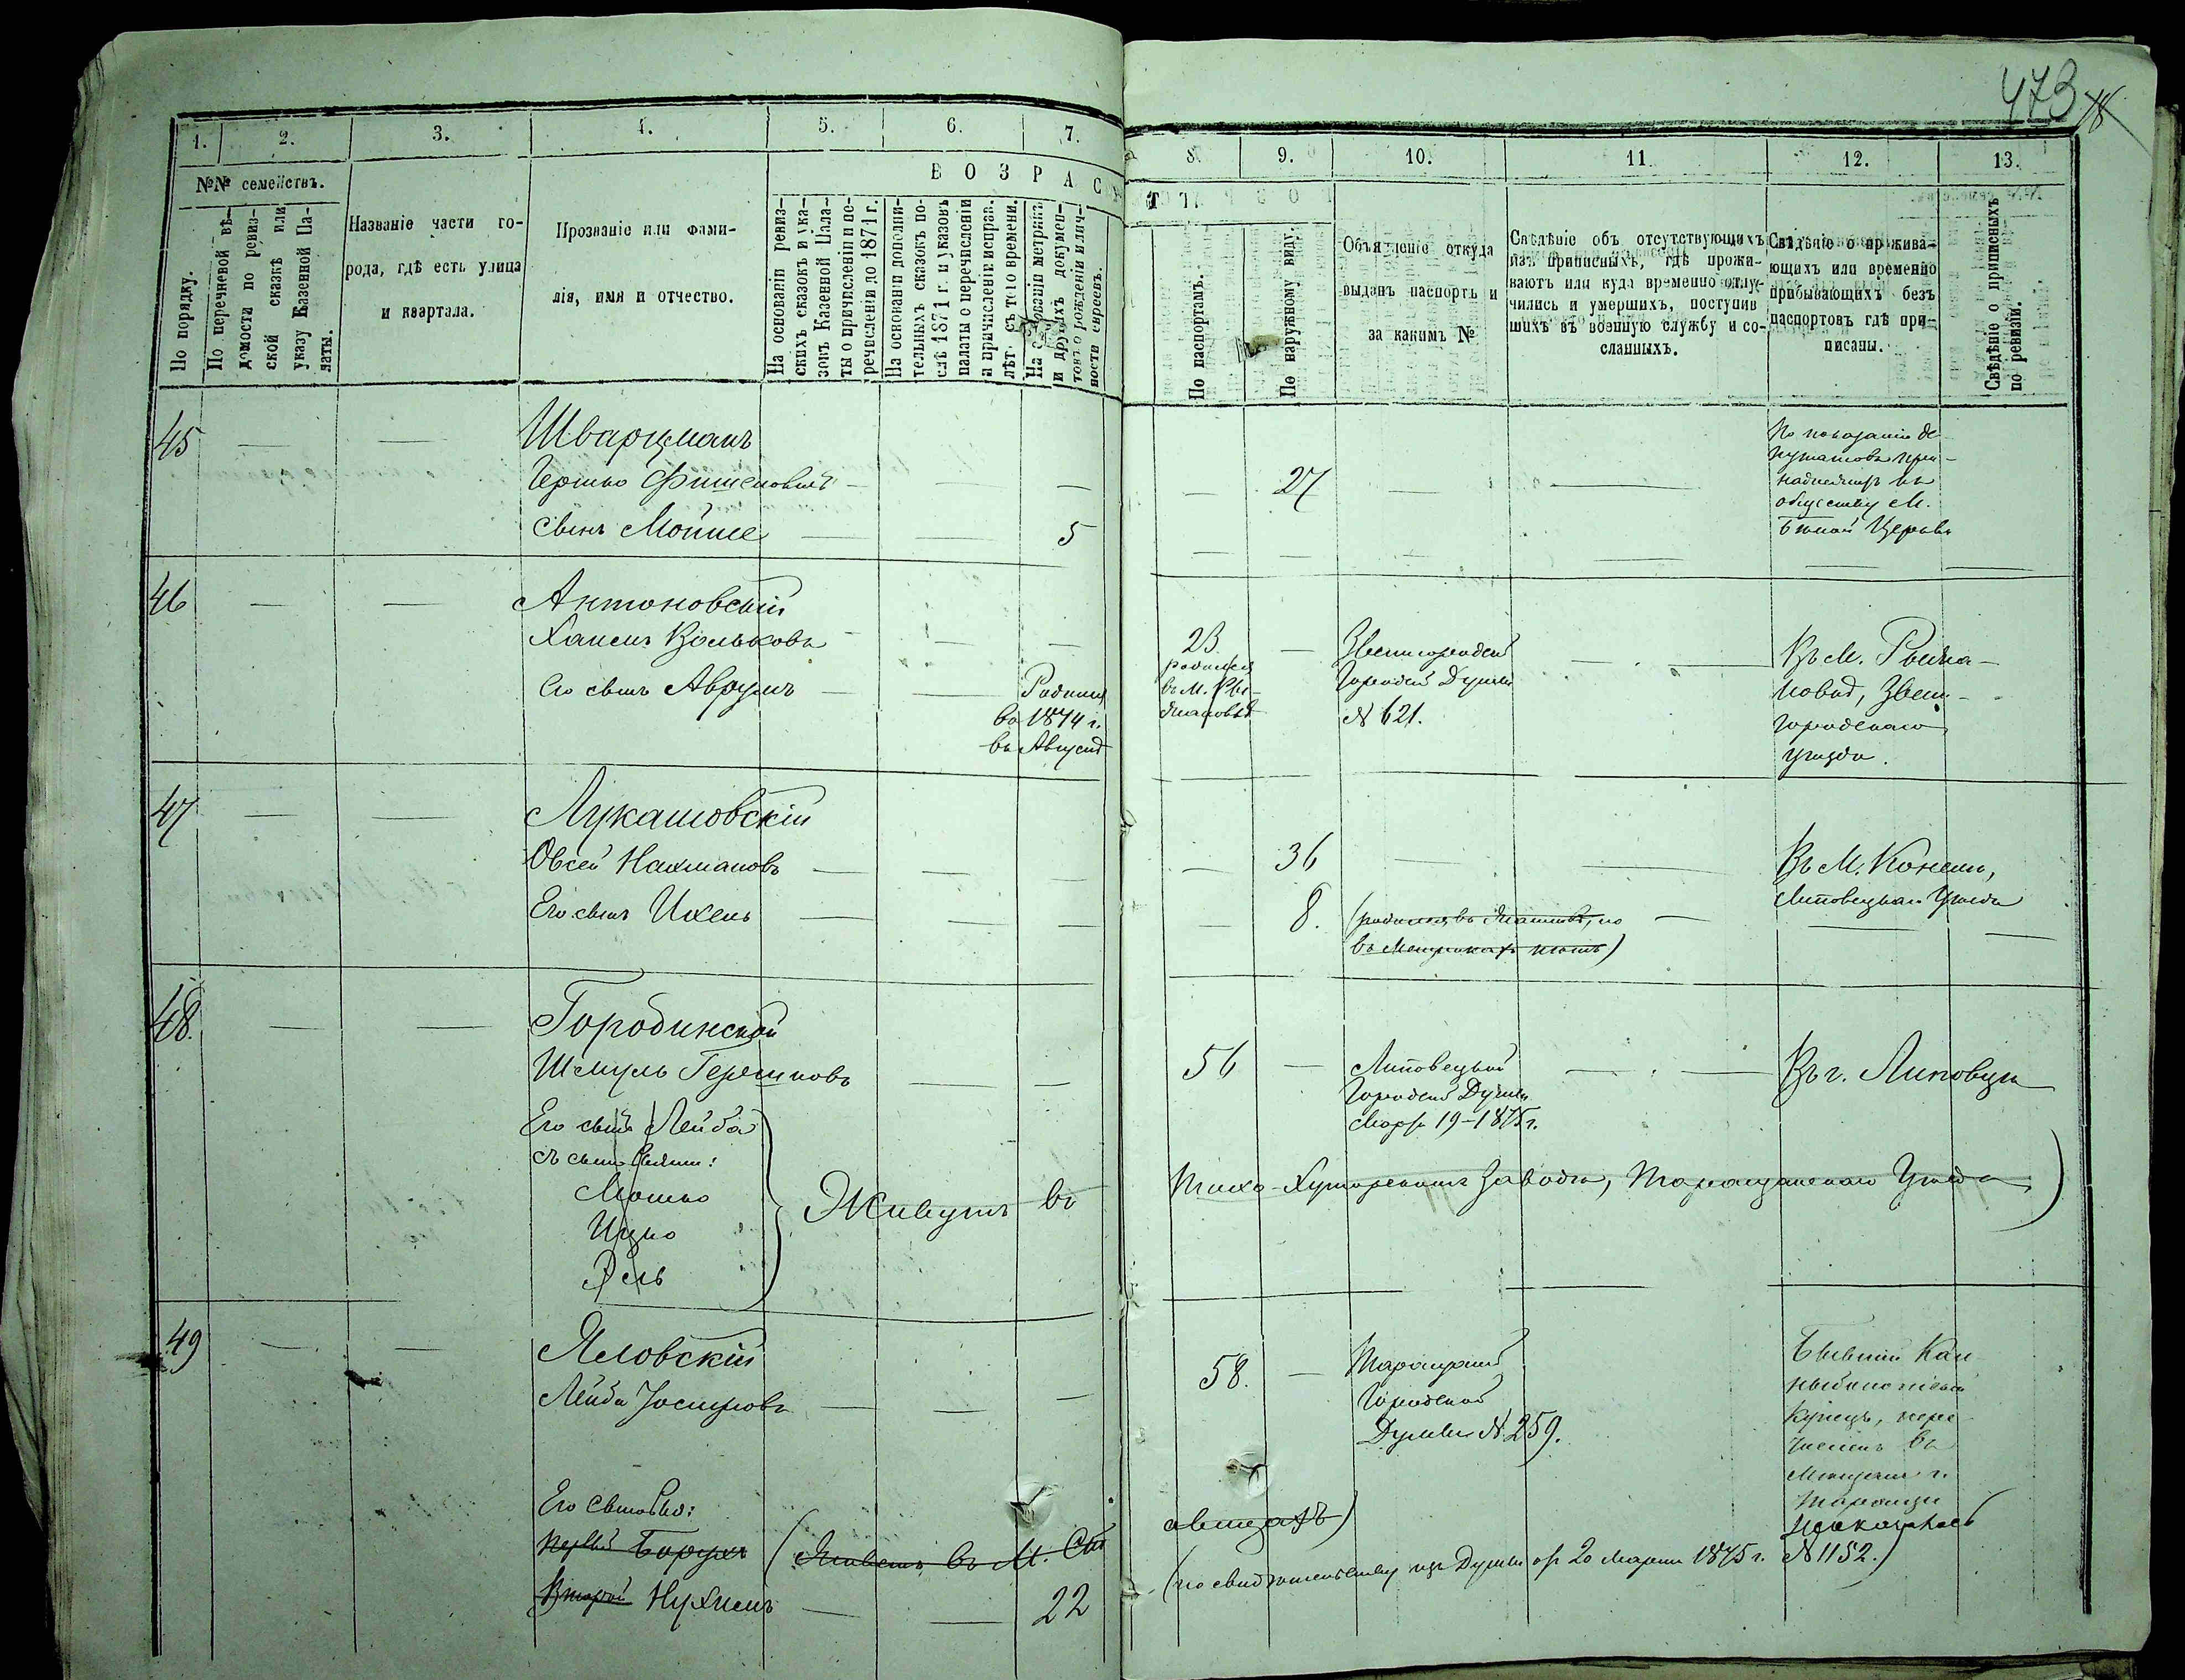 473
1. 2. 3. 4. 5. 6. 7.
8. 9. 10. 11. 12. 13.
№№ семействъ.
По порядку.
По перечневой вѣ-
домости по ревиз-
ской сказкѣ или
указу Казенной Па-
латы.
Названіе части го-
рода, гдѣ есть улица
и квартала.
Прозваніе или фами-
лія, имя и отчество.
ВОЗРАСТЪ
На основаніи ревиз-
скихъ сказокъ и ука-
зокъ Казенной Пала-
ты о причисленіи и пе-
речисленіи до 1871 г.
На основаніи дополни-
тельныхъ сказокъ по-
слѣ 1871 г. и указовъ
палаты о перечисленіи
и причисленіе исправ.
лѣт. съ того времени.
На основаніи метрикъ
и другихъ докумен-
товъ о рожденіи и лич-
ности евреевъ.
По паспортамъ.
По наружному виду.
Объясненіе откуда
выданъ паспортъ и
за какимъ №
Свѣдѣніе объ отсутствующихъ
изъ приписныхъ, гдѣ прожи-
ваютъ или куда временно отлу-
чились и умершихъ, поступив
шихъ въ военную службу и со-
сланныхъ.
Свѣдѣніе о прожива-
ющихъ или временно
прибывающихъ безъ
паспортовъ гдѣ при-
писаны.
Свѣдѣніе о приписныхъ
по ревизіи.
45
Шварцманъ
Гершко Фишеловичъ
27
сынъ Мойше
5
По показанію де-
путатовъ при-
надлежитъ къ
обществу М.
Бѣлой Церкви
46
Антоновскій
Хаимъ Вольковъ
Его сынъ Аврумъ
Родился
въ 1874 г.
въ Августѣ
23.
родился
въ М.
Звенигородской
Городской Думы
№ 621.
Въ М.
Звени-
городскаго
уѣзда.
47
Лукашовскій
Овсей Нахмановъ
36
Его сынъ Ихель
8.
(родился въ но
въ Метрикахъ нѣтъ)
Въ М. Конелы,
Липовецкаго Уѣзда
48.
Городинской
Шмуль Гершковъ
56
Липовецкой
Городской Думы
Марта 19-1875 г.
Въ г. Липовцы
Его сынъ Лейба
съ сыновьями:
Мошко
Ицко
Эль
Живутъ въ Тихо-Хуторскомъ Заводѣ, Таращанскаго Уѣзда)
49
Яловскій
Лейба Іосиповъ
58.
Таращанской
Городской
Думы № 259.
Бывшій Кан
купецъ, пере-
численъ въ
Мѣщане г.
Таращи
Его сыновья:
первый Борухъ (Живетъ въ М. Ста
авищахъ)
Второй Нухимъ
22
(по свидѣтельству изъ Думы отъ 20 Марта 1875 г. № 1152.)